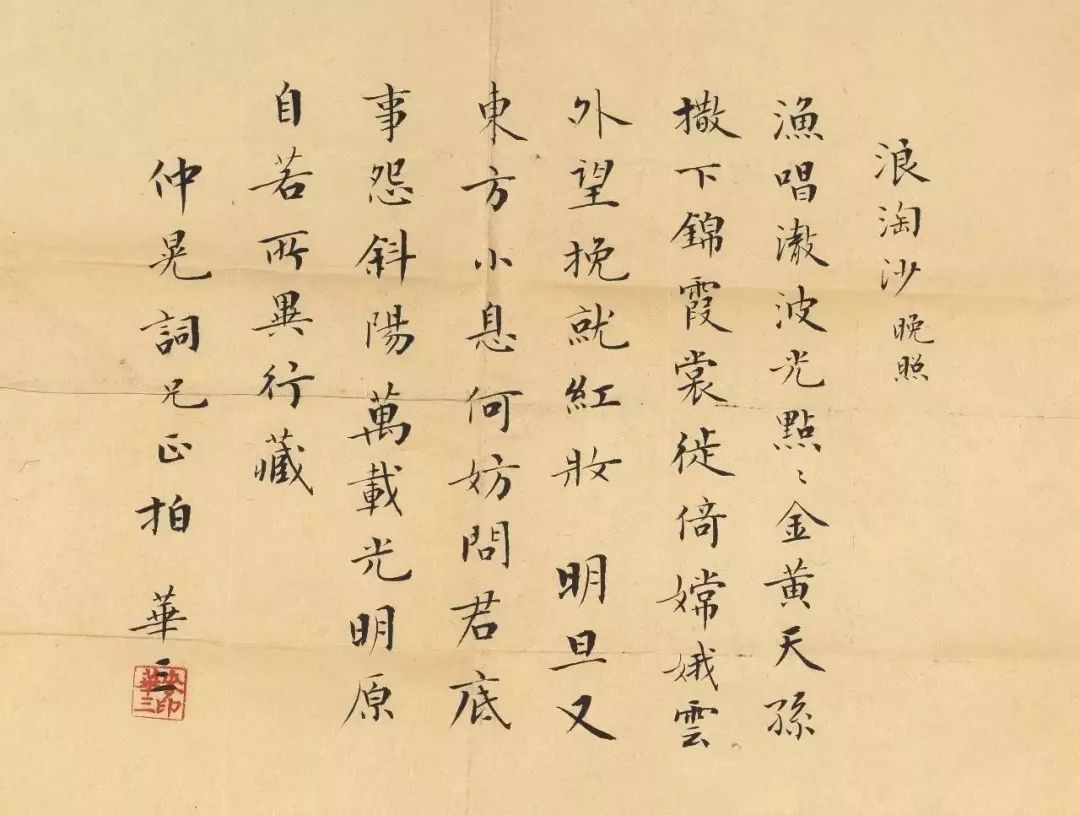 浪淘沙 晚照
漁唱澈波光點〻金黃天孫
撒下錦霞裳徙倚嫦娥雲
外望挽就紅妝 明旦又
東方小息何妨問君底
事怨斜陽萬載光明原
自若所異行藏
仲晃詞兄正拍 華三
印
華三